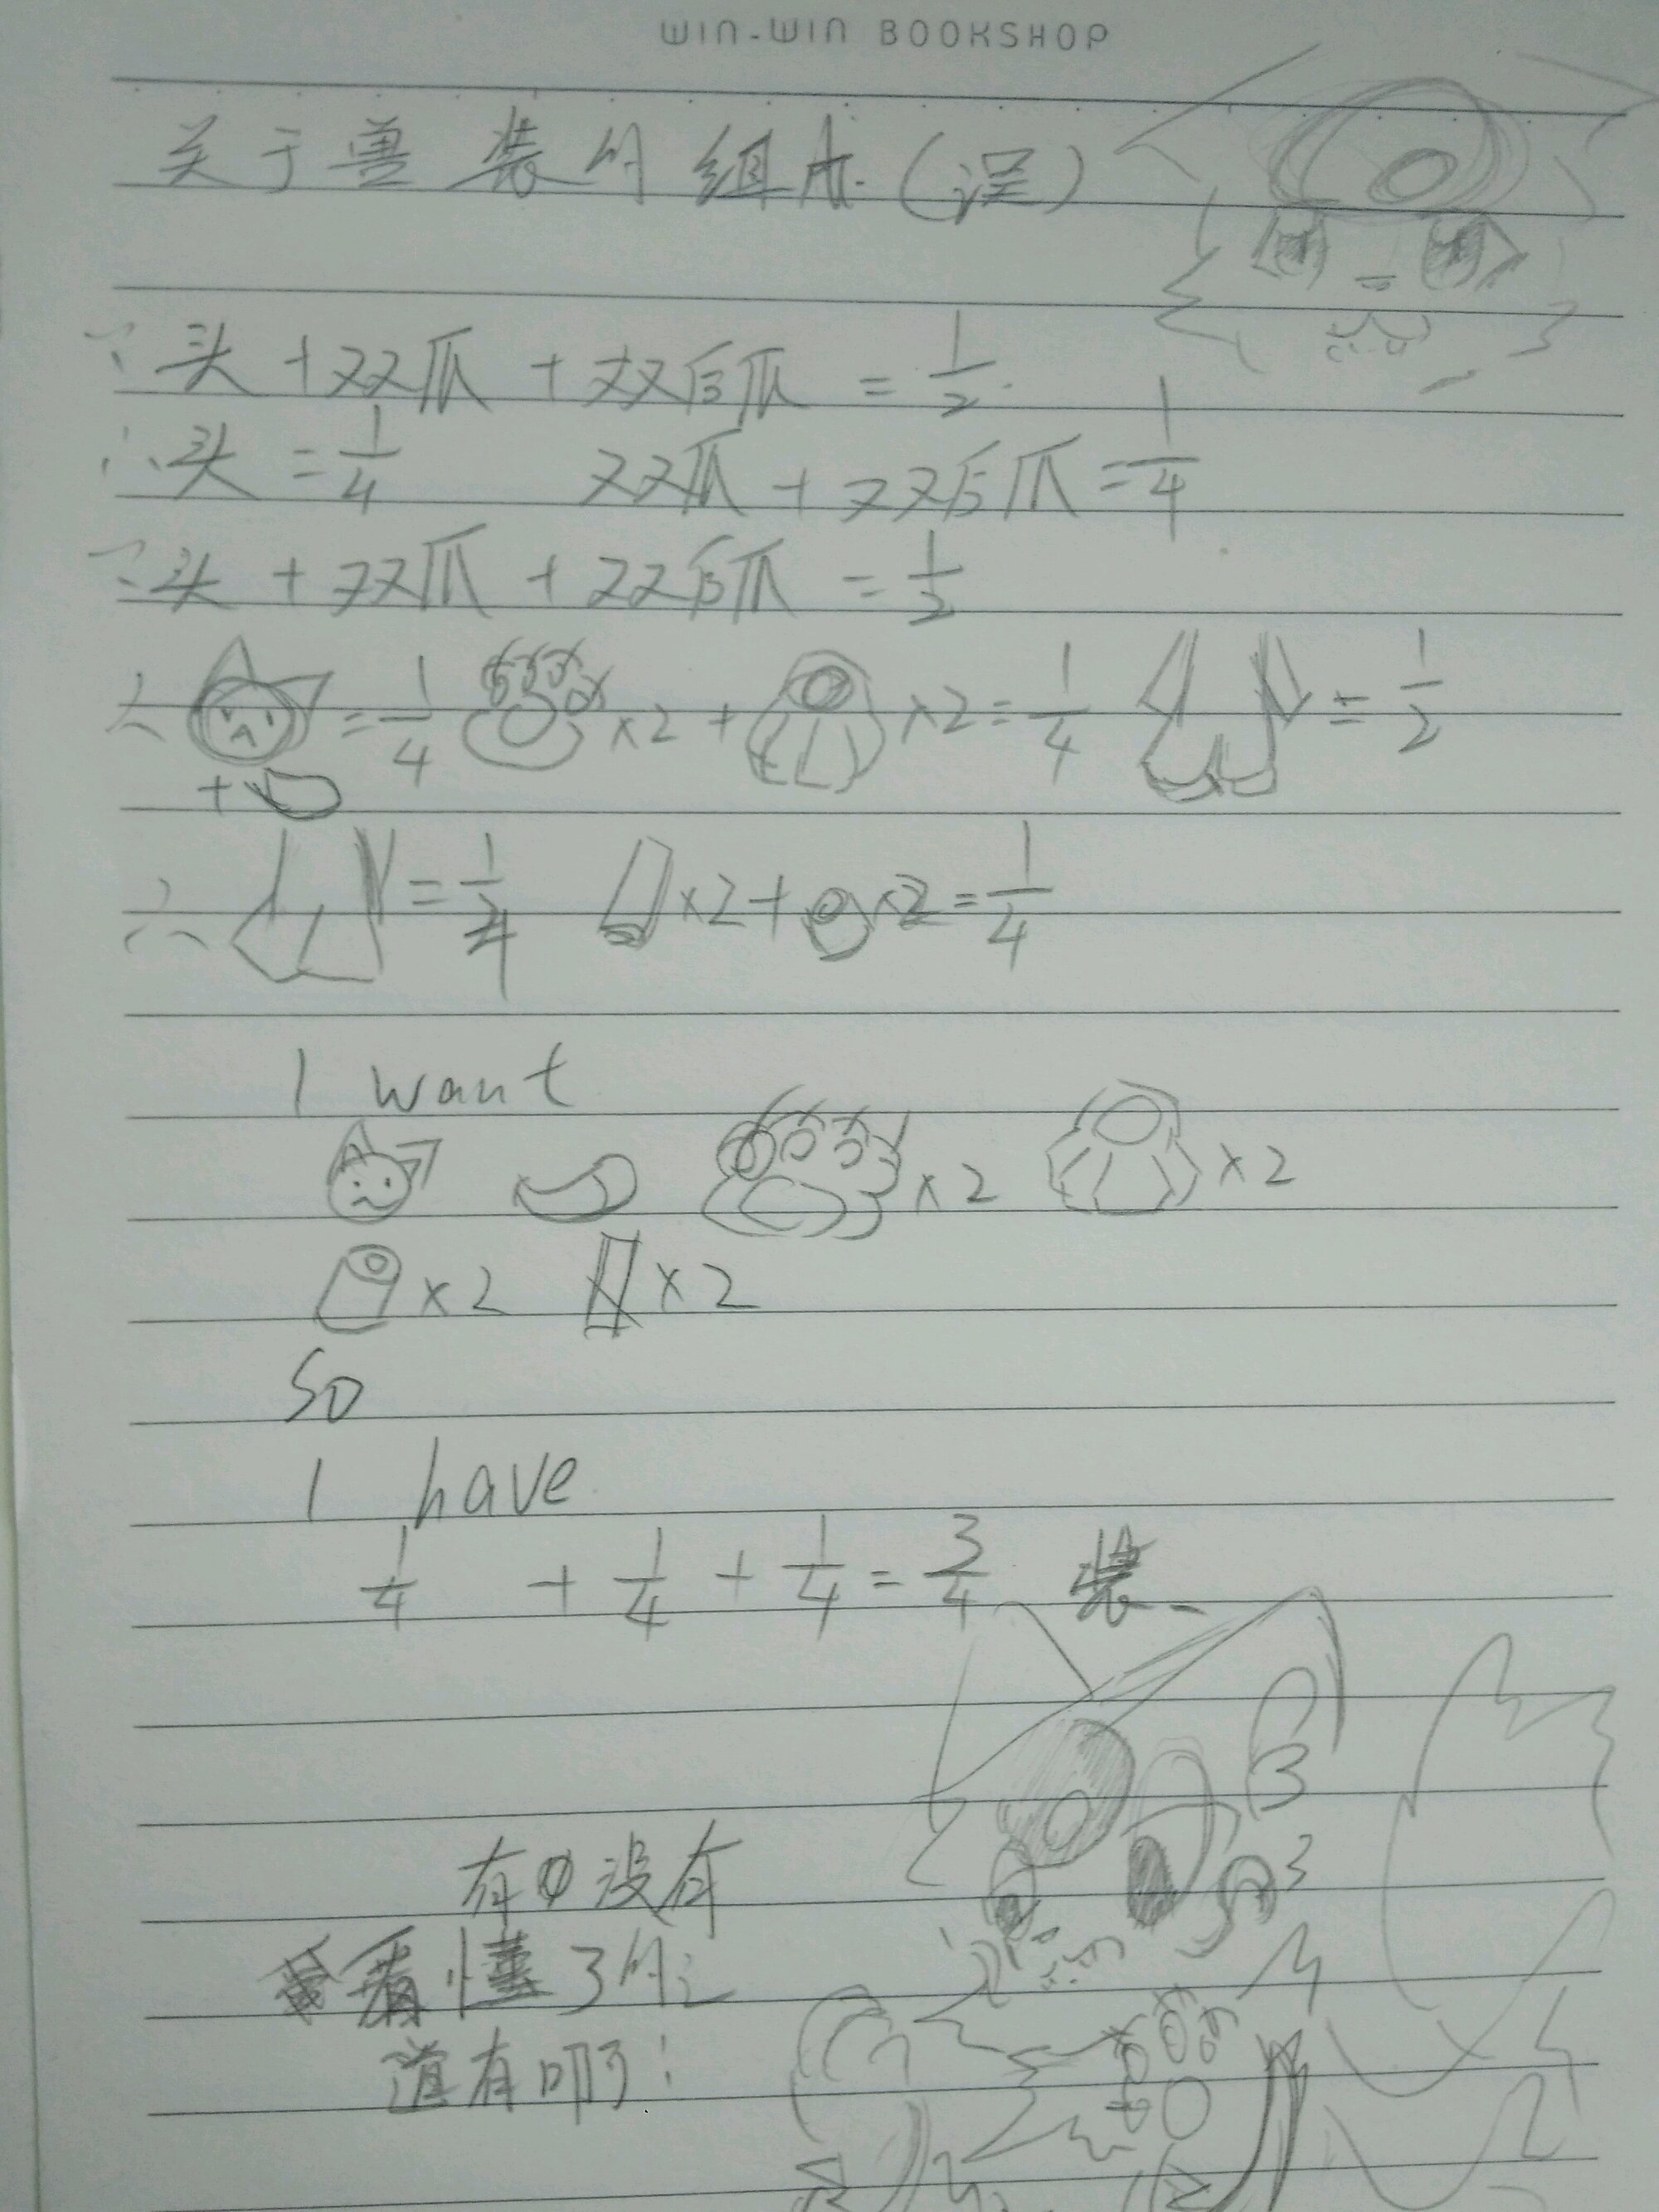 WIN-WIN BOOKSHOP
关于兽装的组成(误)
∵头+双爪+双后爪=1/2
∴头=1/4 双爪+双后爪=1/4
∵头+双爪+双后爪=1/2
∴ =1/4 ×2+ ×2=1/4 =1/2
+
∴ =1/4 ×2+ ×2=1/4
I want
×2 ×2
×2 ×2
so
I have
1/4 + 1/4 + 1/4 = 3/4 装
有没有
看懂了的
道有啊!